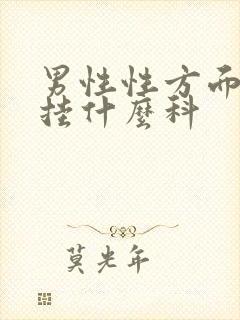 男性性方而
挂什麼科
莫光年